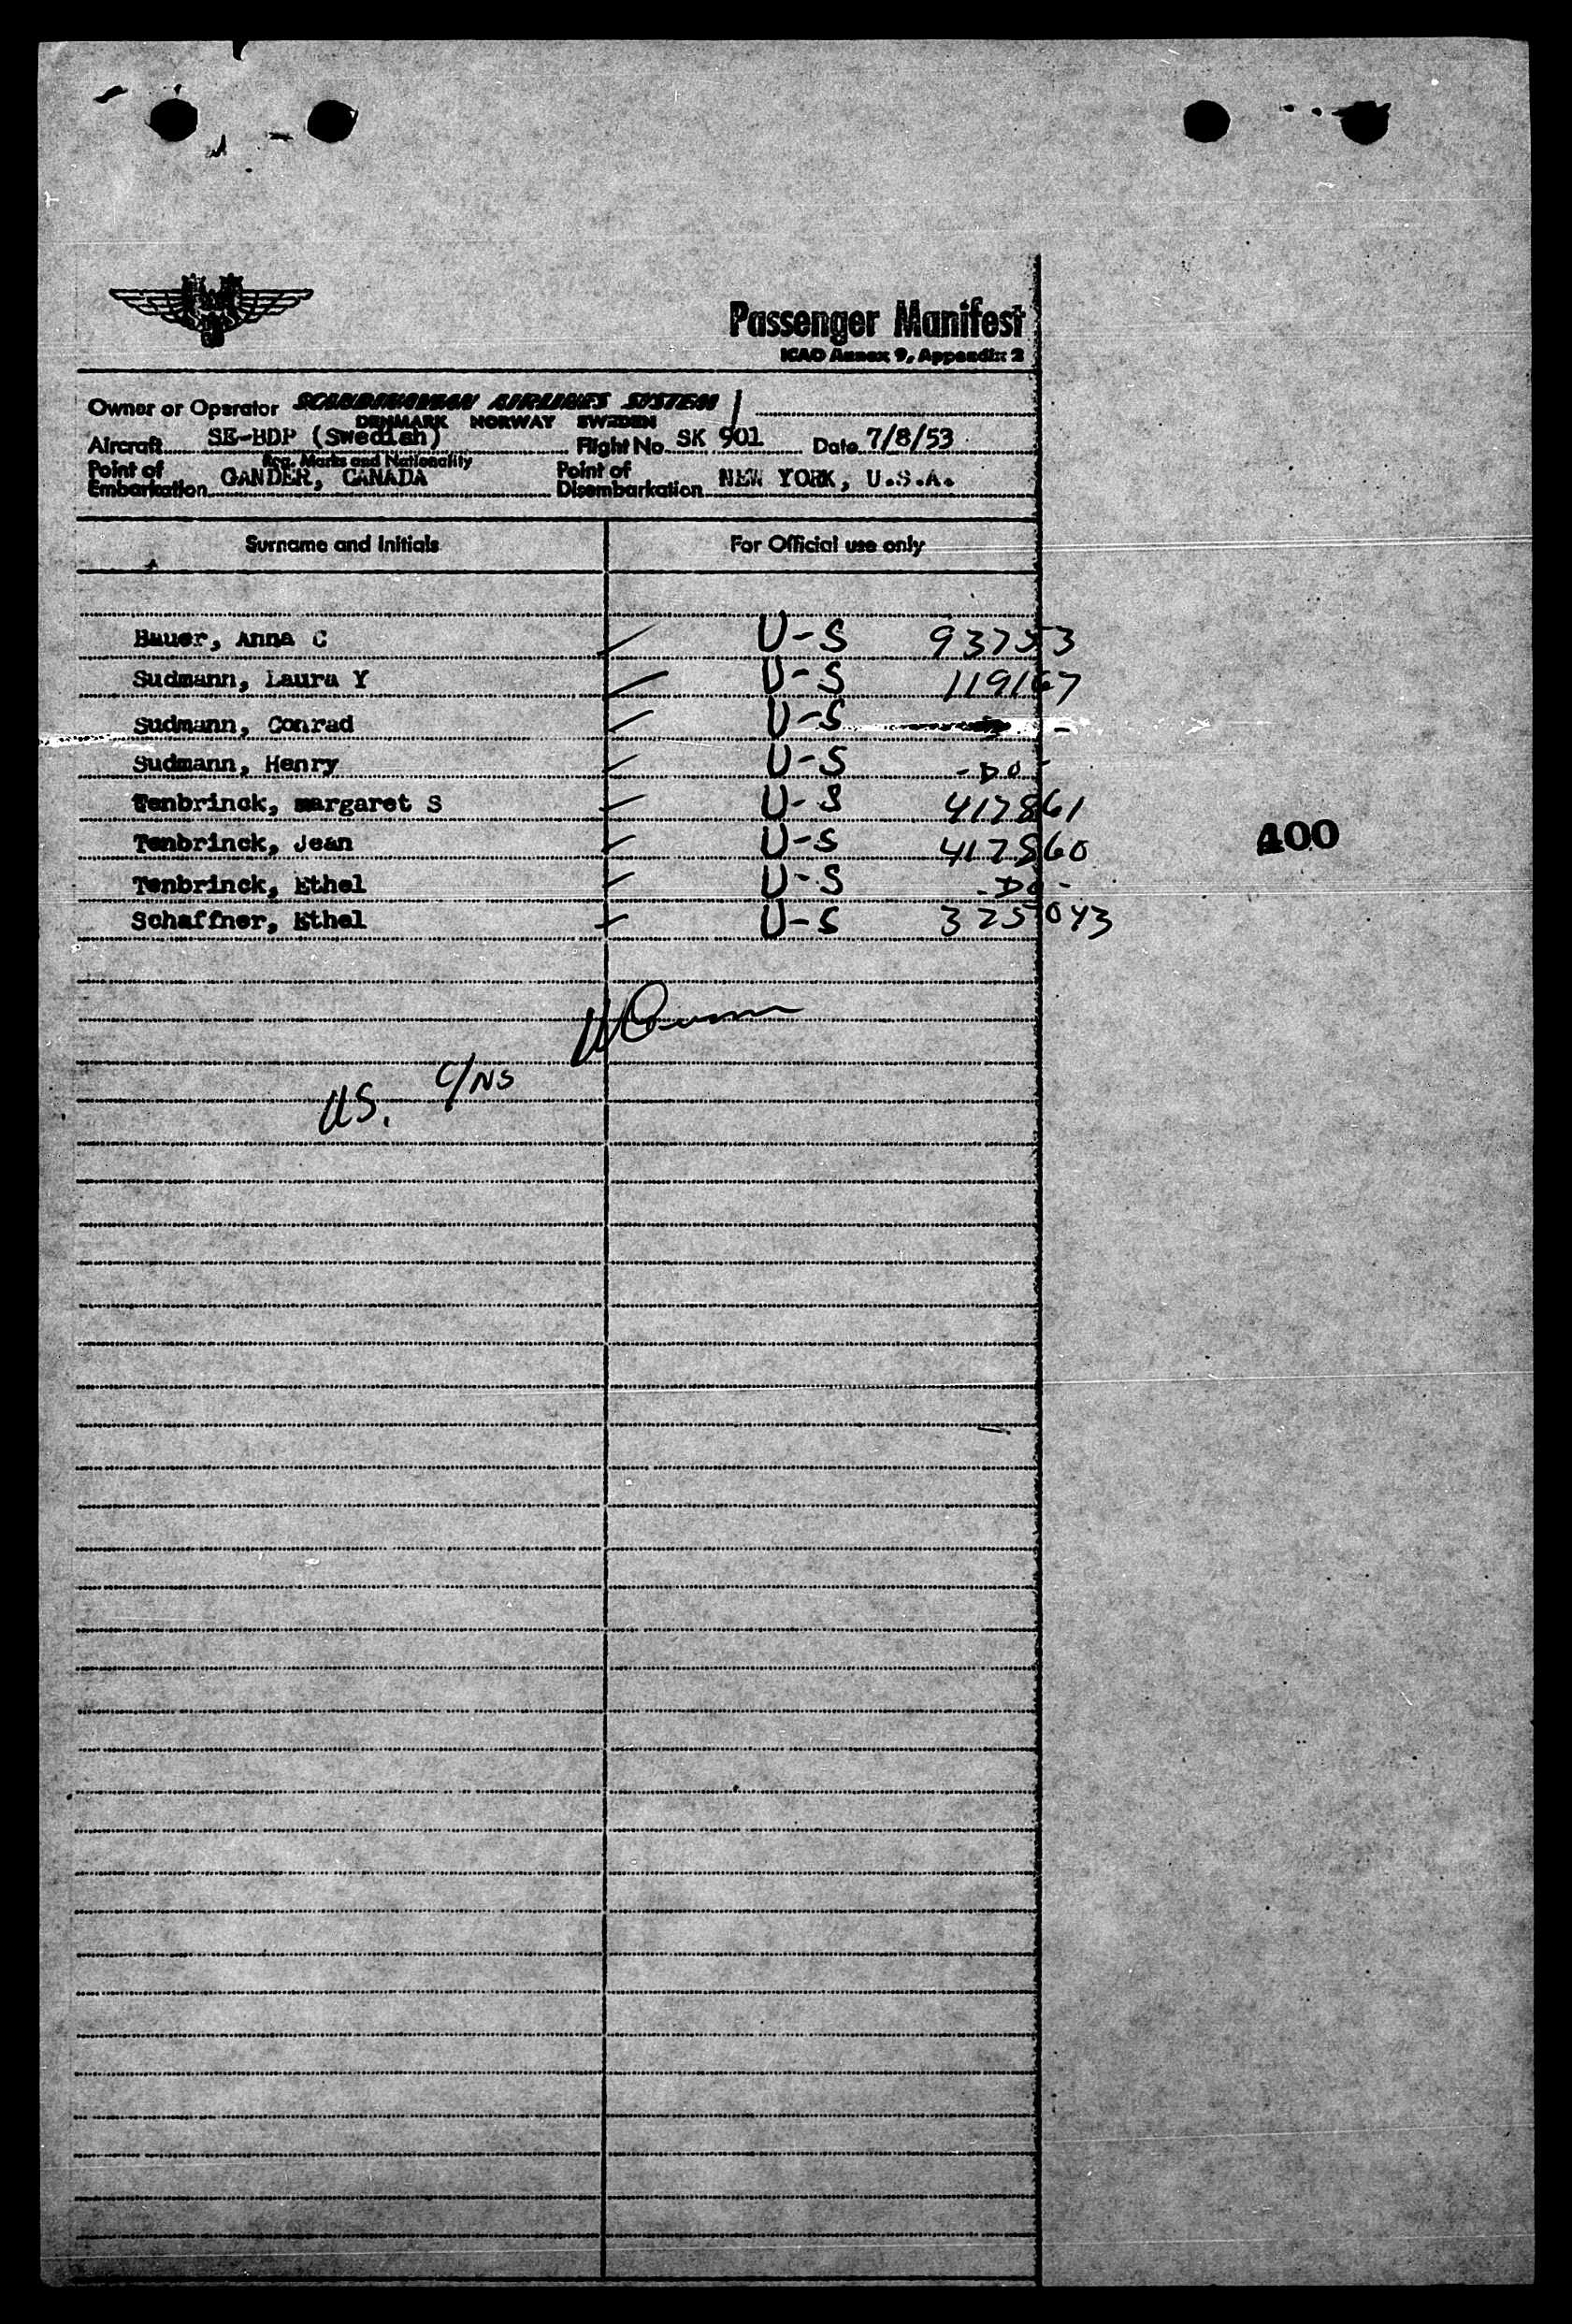 Passenger Manifest
ICAO Annex 9, Appendix 2
Owner or Operator SCANDINAVIAN AIRLINES SYSTEM
DENMARK NORWAY SWEDEN
Aircraft SE-BDP (Swedish) Flight No. SK 901 Date 7/8/53
Reg. Marks and Nationality
Point of Embarkation GANDER, CANADA Point of Disembarkation NEW YORK, U.S.A.
Surname and Initials For Official use only
Bauer, Anna C U-S 93753
Sudmann, Laura Y U-S 119167
Sudmann, Conrad U-S
Sudmann, Henry U-S -DO-
Tenbrinck, margaret S U-S 417861
Tenbrinck, Jean U-S 417860
400
Tenbrinck, Ethel U-S -DO-
Schaffner, Ethel U-S 325043
US. C/NS